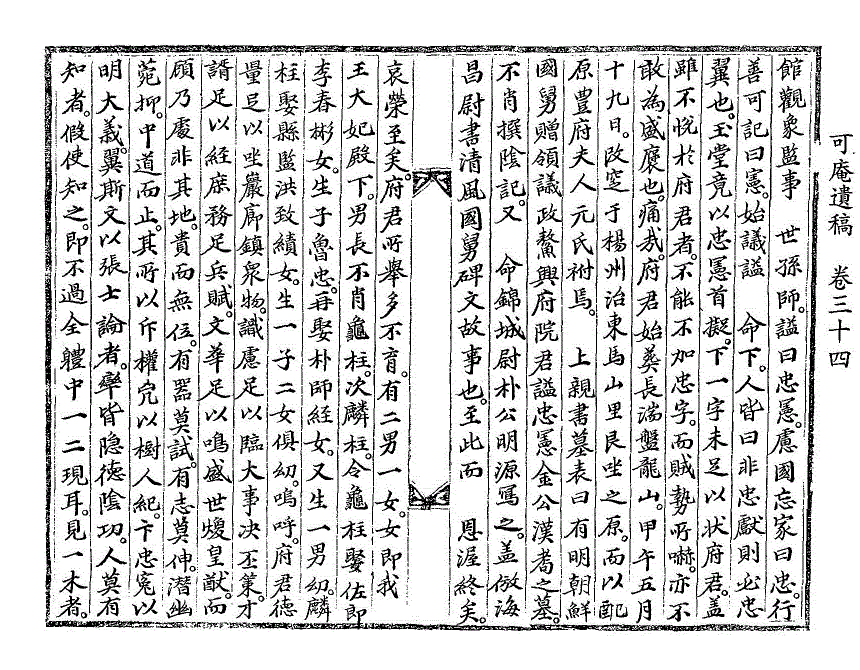 可庵遺稿 卷三十四
館觀象監事 世孫師謚曰忠憲慮國忘家曰忠行
善可記曰憲始議謚 命下人皆曰非忠獻則必忠
翼也玉堂竟以忠憲首擬下一字未足以狀府君盖
雖不悅於府君者不能不加忠字而賊勢所嚇亦不
敢為盛褒也痛哉府君始葬長湍盤龍山甲午五月
十九日改窆于楊州治東馬山里艮坐之原而以配
原豊府夫人元氏祔焉 上親書墓表曰有明朝鮮
國舅贈領議政鰲興府院君謚忠憲金公漢耉之墓
不肖撰陰記又 命錦城尉朴公明源寫之盖倣海
昌尉書清風國舅碑文故事也至此而 恩渥終矣
哀榮至矣府君所擧多不育有二男一女女即我
王大妃殿下男長不肖龜柱次麟柱令龜柱娶佐郎
李春彬女生子魯忠再娶朴師經女又生一男幼麟
柱娶縣監洪致績女生一子二女俱幼嗚呼府君德
量足以坐巖廊鎮衆物識慮足以臨大事決丕策才
諝足以經庶務足兵賦文華足以鳴盛世煥皇猷而
顧乃處非其地貴而無位有器莫試有志莫伸潛幽
菀抑中道而止其所以斥權凶以樹人紀卞忠寃以
明大義翼斯文以張士論者舉皆隐德陰功人莫有
知者假使知之即不過全體中一二現耳見一木者